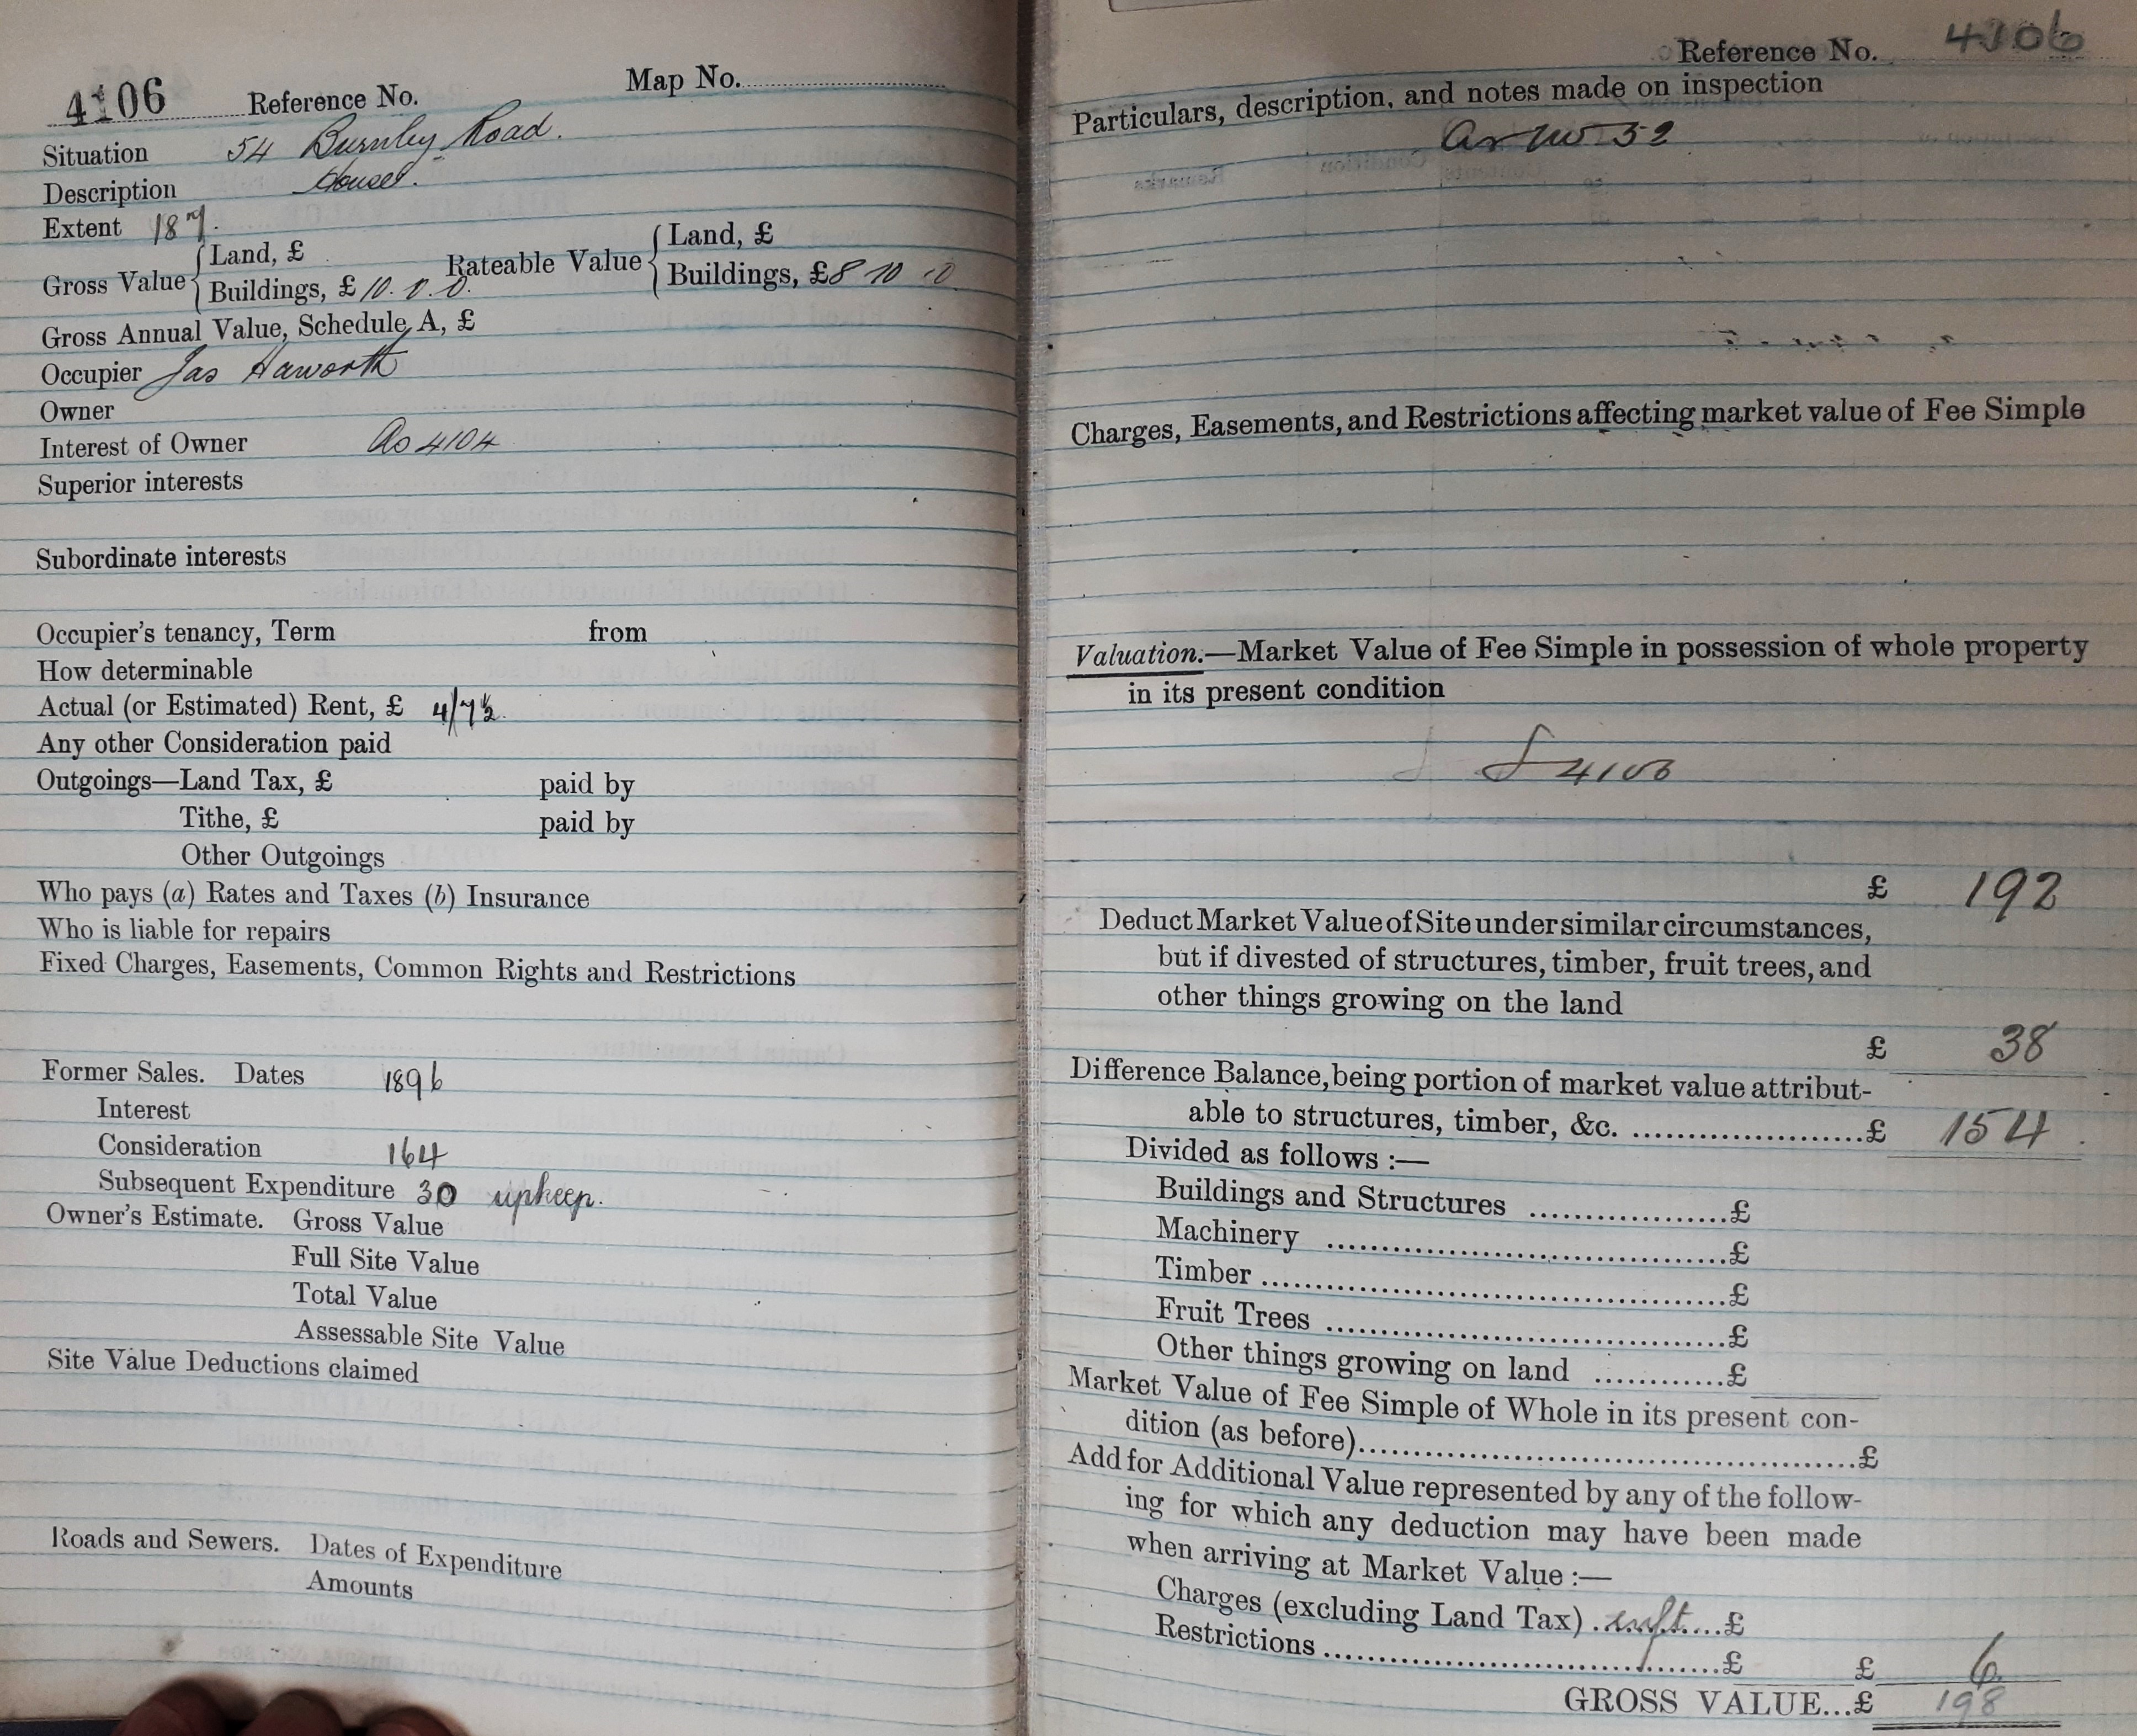 4106 Reference No. Map No.
Situation 54 Burnley Road.
Description House.
Extent 187.
Gross Value { Land, £
Buildings, £ 10. 0. 0.
Rateable Value { Land, £
Buildings, £ 8 10 0
Gross Annual Value, Schedule A, £
Occupier Jas Haworth
Owner
Interest of Owner As 4104
Superior interests
Subordinate interests
Occupier's tenancy, Term from
How determinable
Actual (or Estimated) Rent, £ 4/7½
Any other Consideration paid
Outgoings—Land Tax, £ paid by
Tithe, £ paid by
Other Outgoings
Who pays (a) Rates and Taxes (b) Insurance
Who is liable for repairs
Fixed Charges, Easements, Common Rights and Restrictions
Former Sales. Dates 1896
Interest
Consideration 164
Subsequent Expenditure 30 upkeep.
Owner's Estimate. Gross Value
Full Site Value
Total Value
Assessable Site Value
Site Value Deductions claimed
Roads and Sewers. Dates of Expenditure
Amounts
Reference No. 4106
Particulars, description, and notes made on inspection
as no 52
Charges, Easements, and Restrictions affecting market value of Fee Simple
Valuation.—Market Value of Fee Simple in possession of whole property
in its present condition
£ 192
Deduct Market Value of Site under similar circumstances,
but if divested of structures, timber, fruit trees, and
other things growing on the land
£ 38
Difference Balance, being portion of market value attribut-
able to structures, timber, &c. ........................£ 154
Divided as follows :—
Buildings and Structures ...................£
Machinery .......................................£
Timber .............................................£
Fruit Trees .......................................£
Other things growing on land ............£
Market Value of Fee Simple of Whole in its present con-
dition (as before)....................................................£
Add for Additional Value represented by any of the follow-
ing for which any deduction may have been made
when arriving at Market Value :—
Charges (excluding Land Tax) . ....£
Restrictions .......................................£ £ 6
GROSS VALUE...£ 198